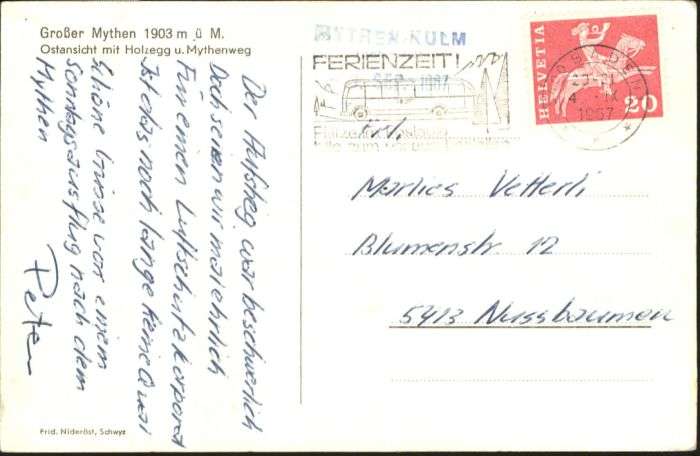 Großer Mythen 1903 m ü M.
Ostansicht mit Holzegg u. Mythenweg
Der Aufstieg war beschwerlich
Doch seien wir mal ehrlich
Für einen Luftschutzkorporal
Ist das noch lange keine Qual
Schöne Grüsse von einem
Sonntagsausflug nach dem
Mythen
Peter
Frid. Nideröst, Schwyz
MYTHEN-KULM
FERIENZEIT!
SEP. 1967
BADEN
4. IX
1967
HELVETIA
20
Marlies Vetterli
Blumenstr. 12
5413 Nussbaumen